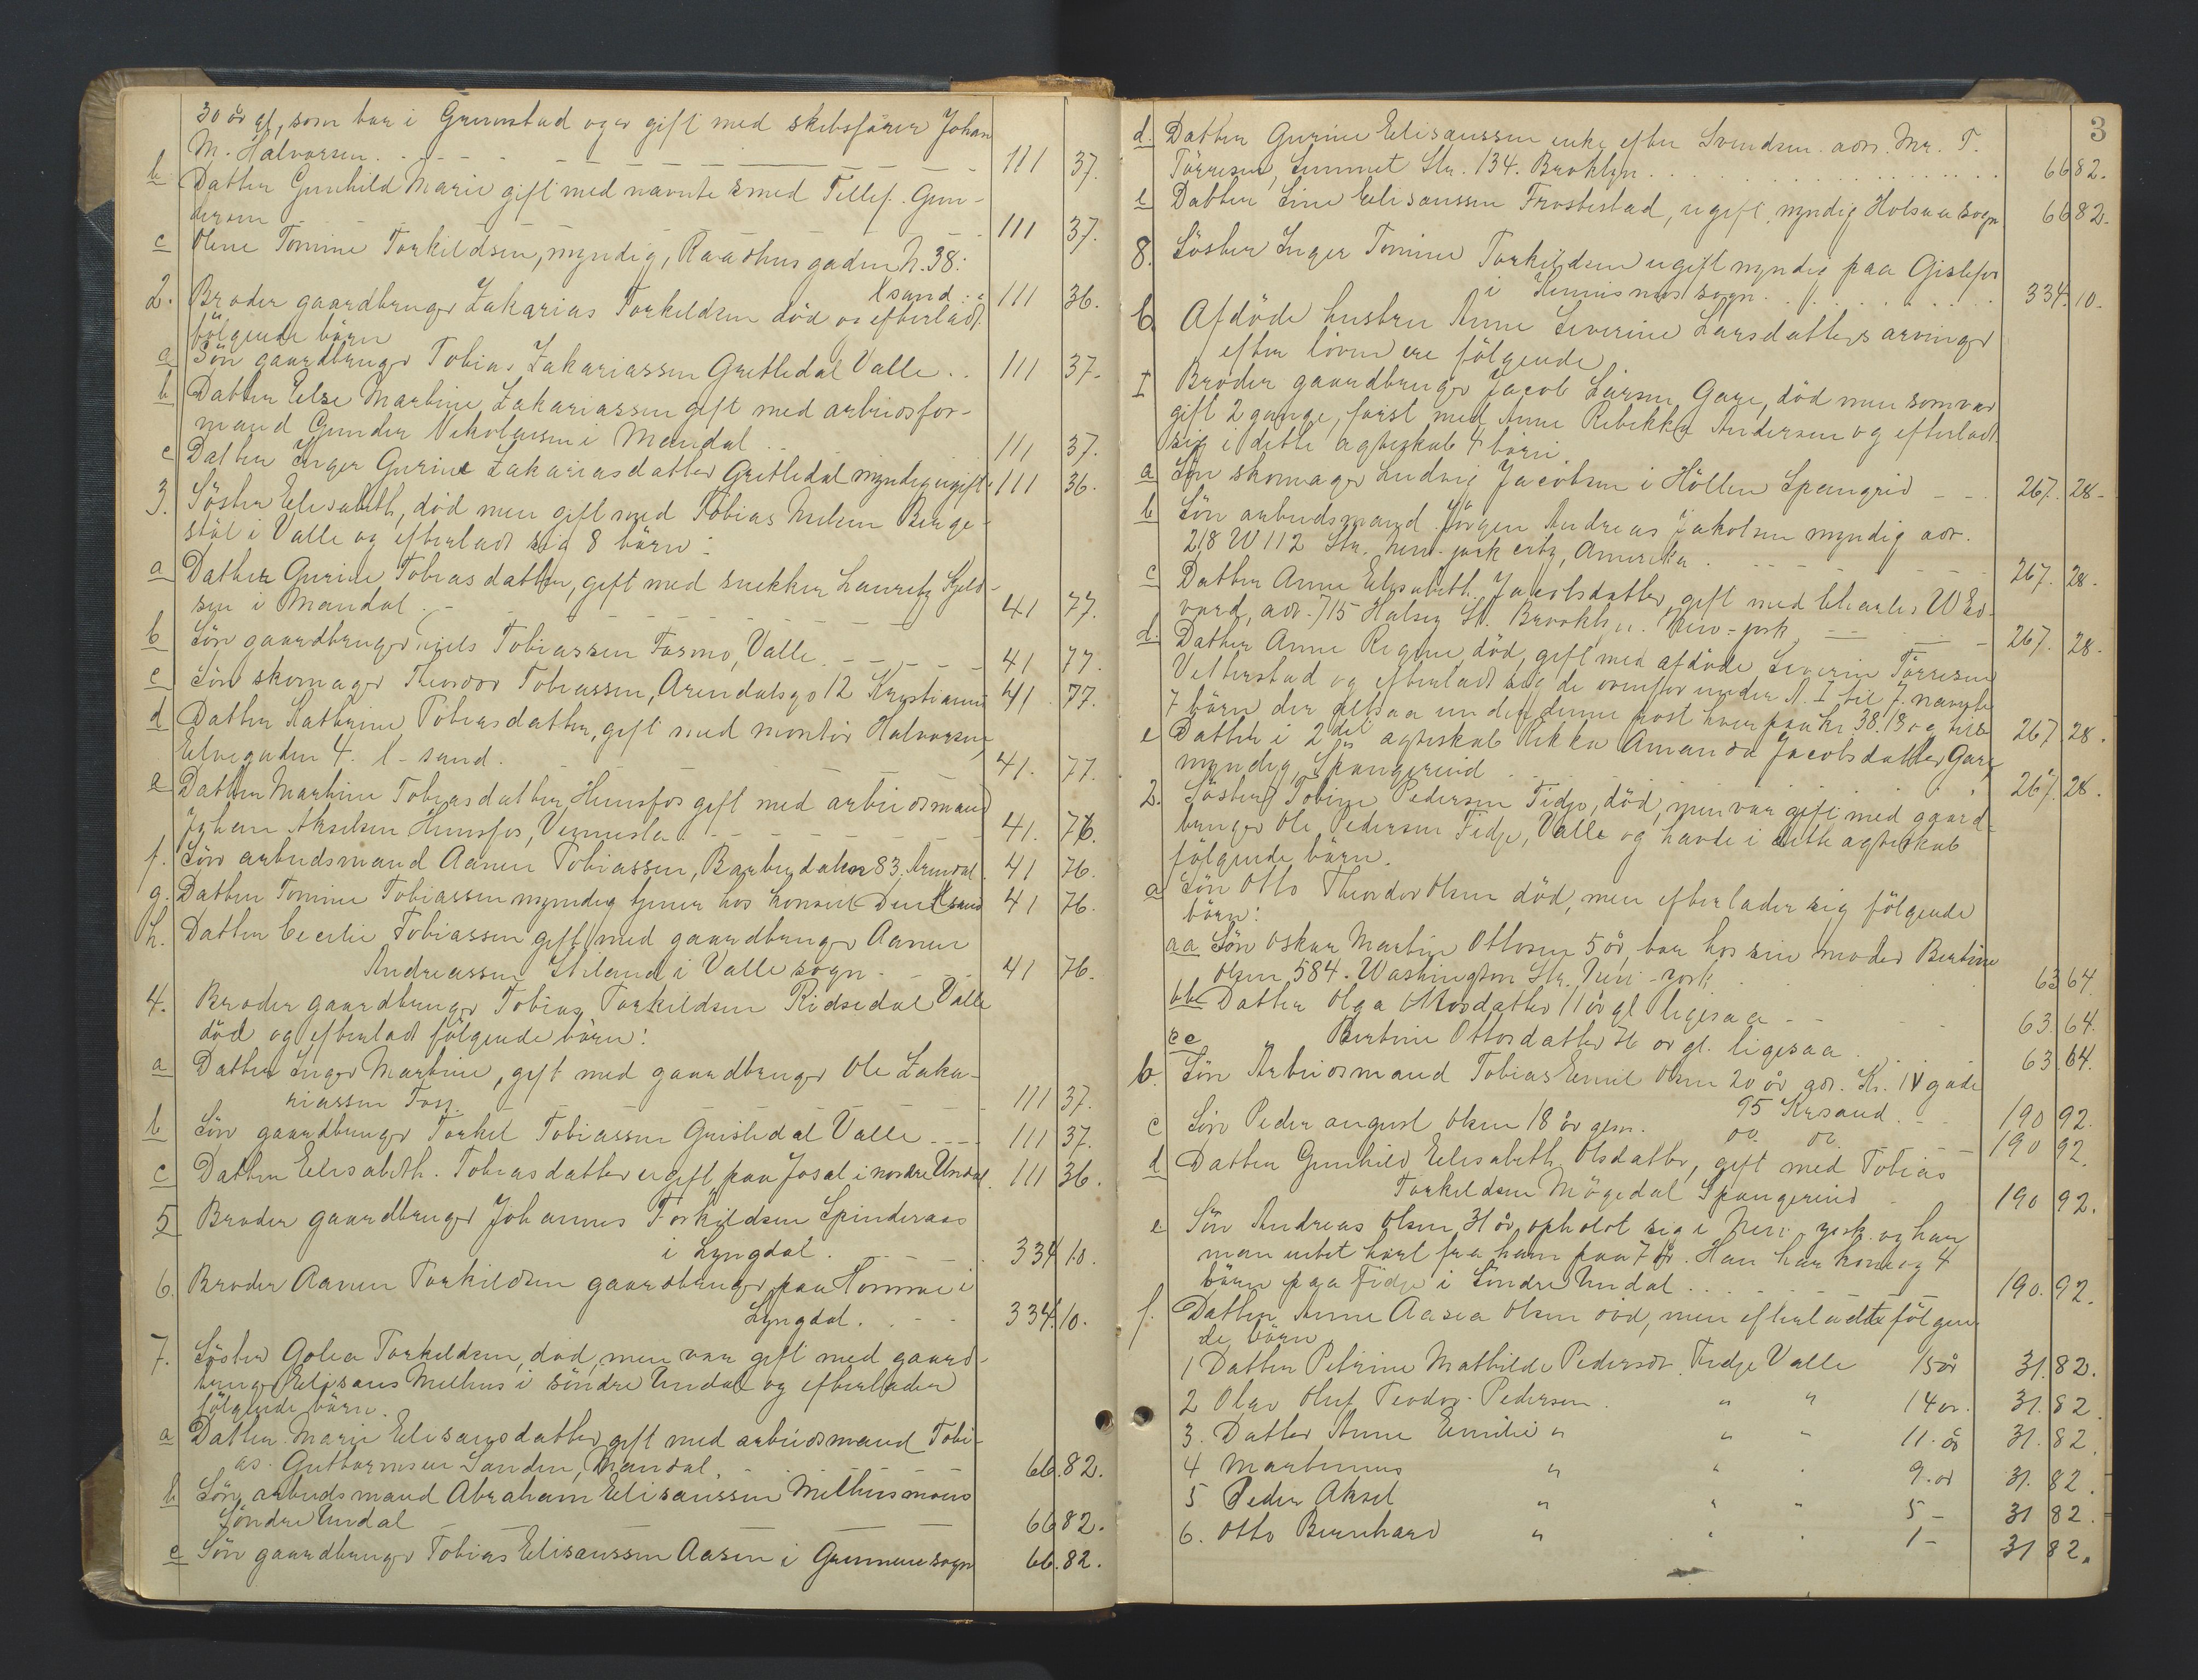 30 år gl, som bor i Grimstad og er gift med skibsfører Johan
M. Halvorsen. 111 37.
b Datter Gunhild Marie gift med nævnte smed Tellef. Gun-
dersen 111 37.
c Oline Tomine Torkildsen, myndig, Raadhusgaden N. 38:
Xsand: 111 36.
2. Broder gaardbruger Zakarias Torkildsen død og efterladt
følgende børn
a Søn gaardbruger Tobias Zakariassen Gretledal Valle .. 111 37.
b Datter Else Martine Zakariassen gift med arbeidsfor-
mand Gunder Nikolaisen i Mandal .. 111 37.
c Datter Inger Gurine Zakariasdatter Gretledal myndig ugift. 111 36.
3. Søster Elisabeth, død men gift med Tobias Nilsen Berge-
støl i Valle og efterladt sig 8 børn:
a Datter Gurine Tobiasdatter, gift med snekker Lauretz Kjeld-
sen i Mandal. 41 77.
b Søn gaardbruger Niels Tobiassen Fosmo, Valle. 41 77.
c Søn skomager Theodor Tobiassen, Arendalsg 12 Kristiania 41 77.
d Datter Kathrine Tobiasdatter, gift med montør Halvorsen,
Elvegaden 4. X-sand. 41. 77.
e Datter Martine Tobiasdatter Hunsfos gift med arbeidsmand
Johan Akselsen Hunsfos, Vennesla. 41. 76.
f. Søn arbeidsmand Aanen Tobiassen, Barbudalen 83. Arendal. 41 76.
g. Datter Tomine Tobiassen myndig tjener hos konsul Due Xsand 41 76.
h. Datter Cecilie Tobiassen gift med gaardbruger Aanen
Andreassen Stiland i Valle sogn 41 76.
4. Broder gaardbruger Tobias Torkildsen Ridsedal Valle
død og efterladt følgende børn:
a Datter Inger Martine, gift med gaardbruger Ole Zaka-
riassen Foss. 111 37.
b Søn gaardbruger Torkel Tobiassen Gristedal Valle ---- 111 37.
c Datter Elisabeth. Tobiasdatter ugift paa Josal i nordre Undal. 111 36.
5 Broder gaardbruger Johannes Torkildsen Spinderaas
i Lyngdal. 334 10.
6. Broder Aanen Torkildsen gaardbruger paa Homme i
Lyngdal. 334. 10.
7. Søster Golea Torkildsen, død, men var gift med gaard-
bruger Elisaus Melhus i søndre Undal og efterlader
følgende børn.
a Datter Marie Elisausdatter gift med arbeidsmand Tobi-
as. Guttormsen Sanden, Mandal. 66. 82.
b Søn, arbeidsmand Abraham Elisaussen Melhusmoen
Søndre Undal 66 82.
c Søn gaardbruger Tobias Elisaussen Aasen i Grummen sogn 66. 82.
3
d. Datter Gurine Elisaussen enke efter Svendsen. adr. Mr. T.
Tørresen, Summet Str. 134. Broklyn. 66 82.
e Datter Sine Elisaussen Frostestad, ugift myndig Holsaa sogn 66 82.
8. Søster Inger Tomine Torkildsen ugift myndig paa Gislefos
i sogn. 334. 10.
6. Afdøde hustru Anne Severine Larsdatters arvinger
efter loven ere følgende
I Broder gaardbruger Jacob Larsen Gare, død men som var
gift 2 gange, først med Anne Rebekka Andersen og efterladt
sig i dette ægteskab 4 børn.
a Søn skomager Ludvig Jacobsen i Høllen Spangreid 267. 28.
b Søn arbeidsmand Jørgen Andreas Jakobsen myndig adr.
218 W 112 Str. New-york city, Amerika. 267. 28.
c Datter Anne Elisabeth. Jacobsdatter, gift med Charles W Ed-
vard, adr. 715 Halsey St. Brooklyn. New-york. 267. 28.
d. Datter Anne Regine død, gift med afdøde Severin Tørresen
Vetterstad og efterladt sig de ovenfor under N. I til 7. nævnte
7 børn der altsaa under denne post hver faar kr 38.18 og 267. 28.
e Datter i 2det ægteskab Rikka Amanda Jacobsdatter Gare,
myndig Spangereid 267. 28.
2. Søster Tobine Pedersen Fidje, død, men var gift med gaard-
bruger Ole Pedersen Fidje, Valle og havde i dette ægteskab
følgende børn.
a Søn Otto Theodor Olsen død, men efterlader sig følgende
børn:
aa Søn Oskar Martin Ottosen 5 år, bor hos sin moder Bertine
Olsen 584. Washington Str. New-York. 63 64.
bb Datter Olga Ottosdatter 11 år gl ligesaa -- 63. 64.
cc Bertine Ottosdatter år gl. ligesaa 63. 64.
b. Søn Arbeidsmand Tobias Emil Olsen 20 år adr. Kr. IV gade
95 Krsand 190 92.
c Søn Peder august Olsen 18 år gl. do. do. 190 92.
d Datter Gunhild Elisabeth Olsdatter, gift med Tobias
Torkildsen Møgedal Spangereid 190 92.
e Søn Andreas Olsen, 31 år, opholdt sig i New-york og har
man intet hørt fra ham paa 7 år. Han har kone og 4
børn paa Fidje i Søndre Undal. 190. 92.
f. Datter Anne Aasea Olsen død, men efterladte følgen-
de børn.
1 Datter Petrine Mathilde Pedersdr. Fidje Valle 15 år 31. 82.
2 Olav Oluf Teodor Pedersen. " " 14 år. 31. 82.
3. Datter Anne Emilie " " " 11. år 31. 82.
4 Martinius " " " 9. år 31. 82.
5 Peder Aksel " " " 5 - 31 82.
6. Otto Bernhard " " " 1 - 31 82.